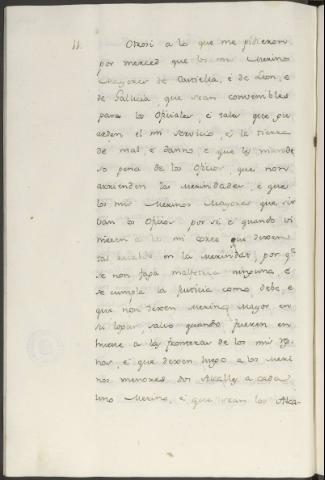 11. Otrosi a lo que me pidieron
por merced que los mis Merino
Mayores de Castiella, é de Leon, e
de Gallicia, que sean convenibles
para los Oficiales, é tales que pu
eden el mi servicio, é la tierra
de mal, é danno, e que les mande
so pena de los Oficios, que non
arrienden las Merindades, e que
los mis Merinos Mayores que sir
ban los Oficios por si é quando vi
nieren a la mi corte que dexen
tal recabdo en la Merindat, por qe
se non faga malfetria ninguna, é
se cumpla la Justicia como debe, e
que non dexen Merino Mayor en
su logar, salvo quando fueren en
hueste a las fronteras de los mis Reg
nos, é que dexen luego a los Meri
nos menores dos Alcalles a cada
uno Merino, é que sean los Alca-